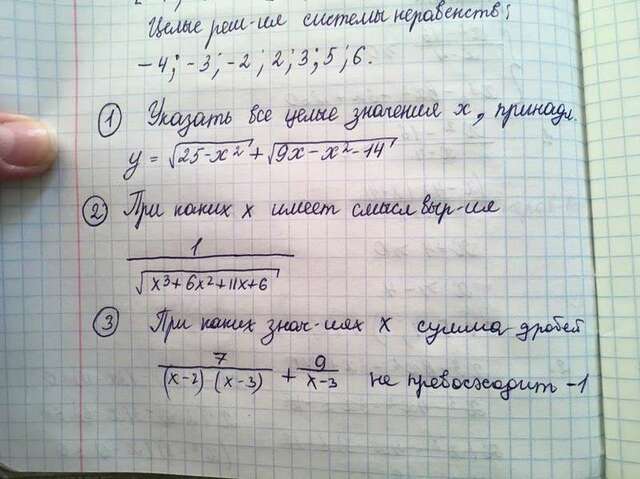 Целые реш-ия системы неравенств:
-4; -3; -2; 2; 3; 5; 6.
① Указать все целые значения x, принадл.
y = √25-x² + √9x-x²-14
② При каких x имеет смысл выр-ия
1
√x³+6x²+11x+6
③ При каких знач-иях x сумма дробей
7/(x-2)(x-3) + 9/x-3 не превосходит -1